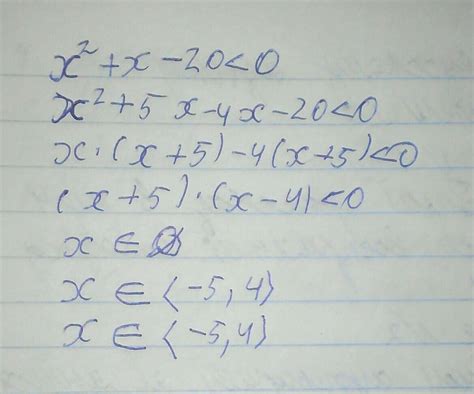 x² + x - 20 < 0
x² + 5x - 4x - 20 < 0
x · (x + 5) - 4(x + 5) < 0
(x + 5) · (x - 4) < 0
x ∈ ∅
x ∈ ⟨-5, 4⟩
x ∈ ⟨-5, 4⟩